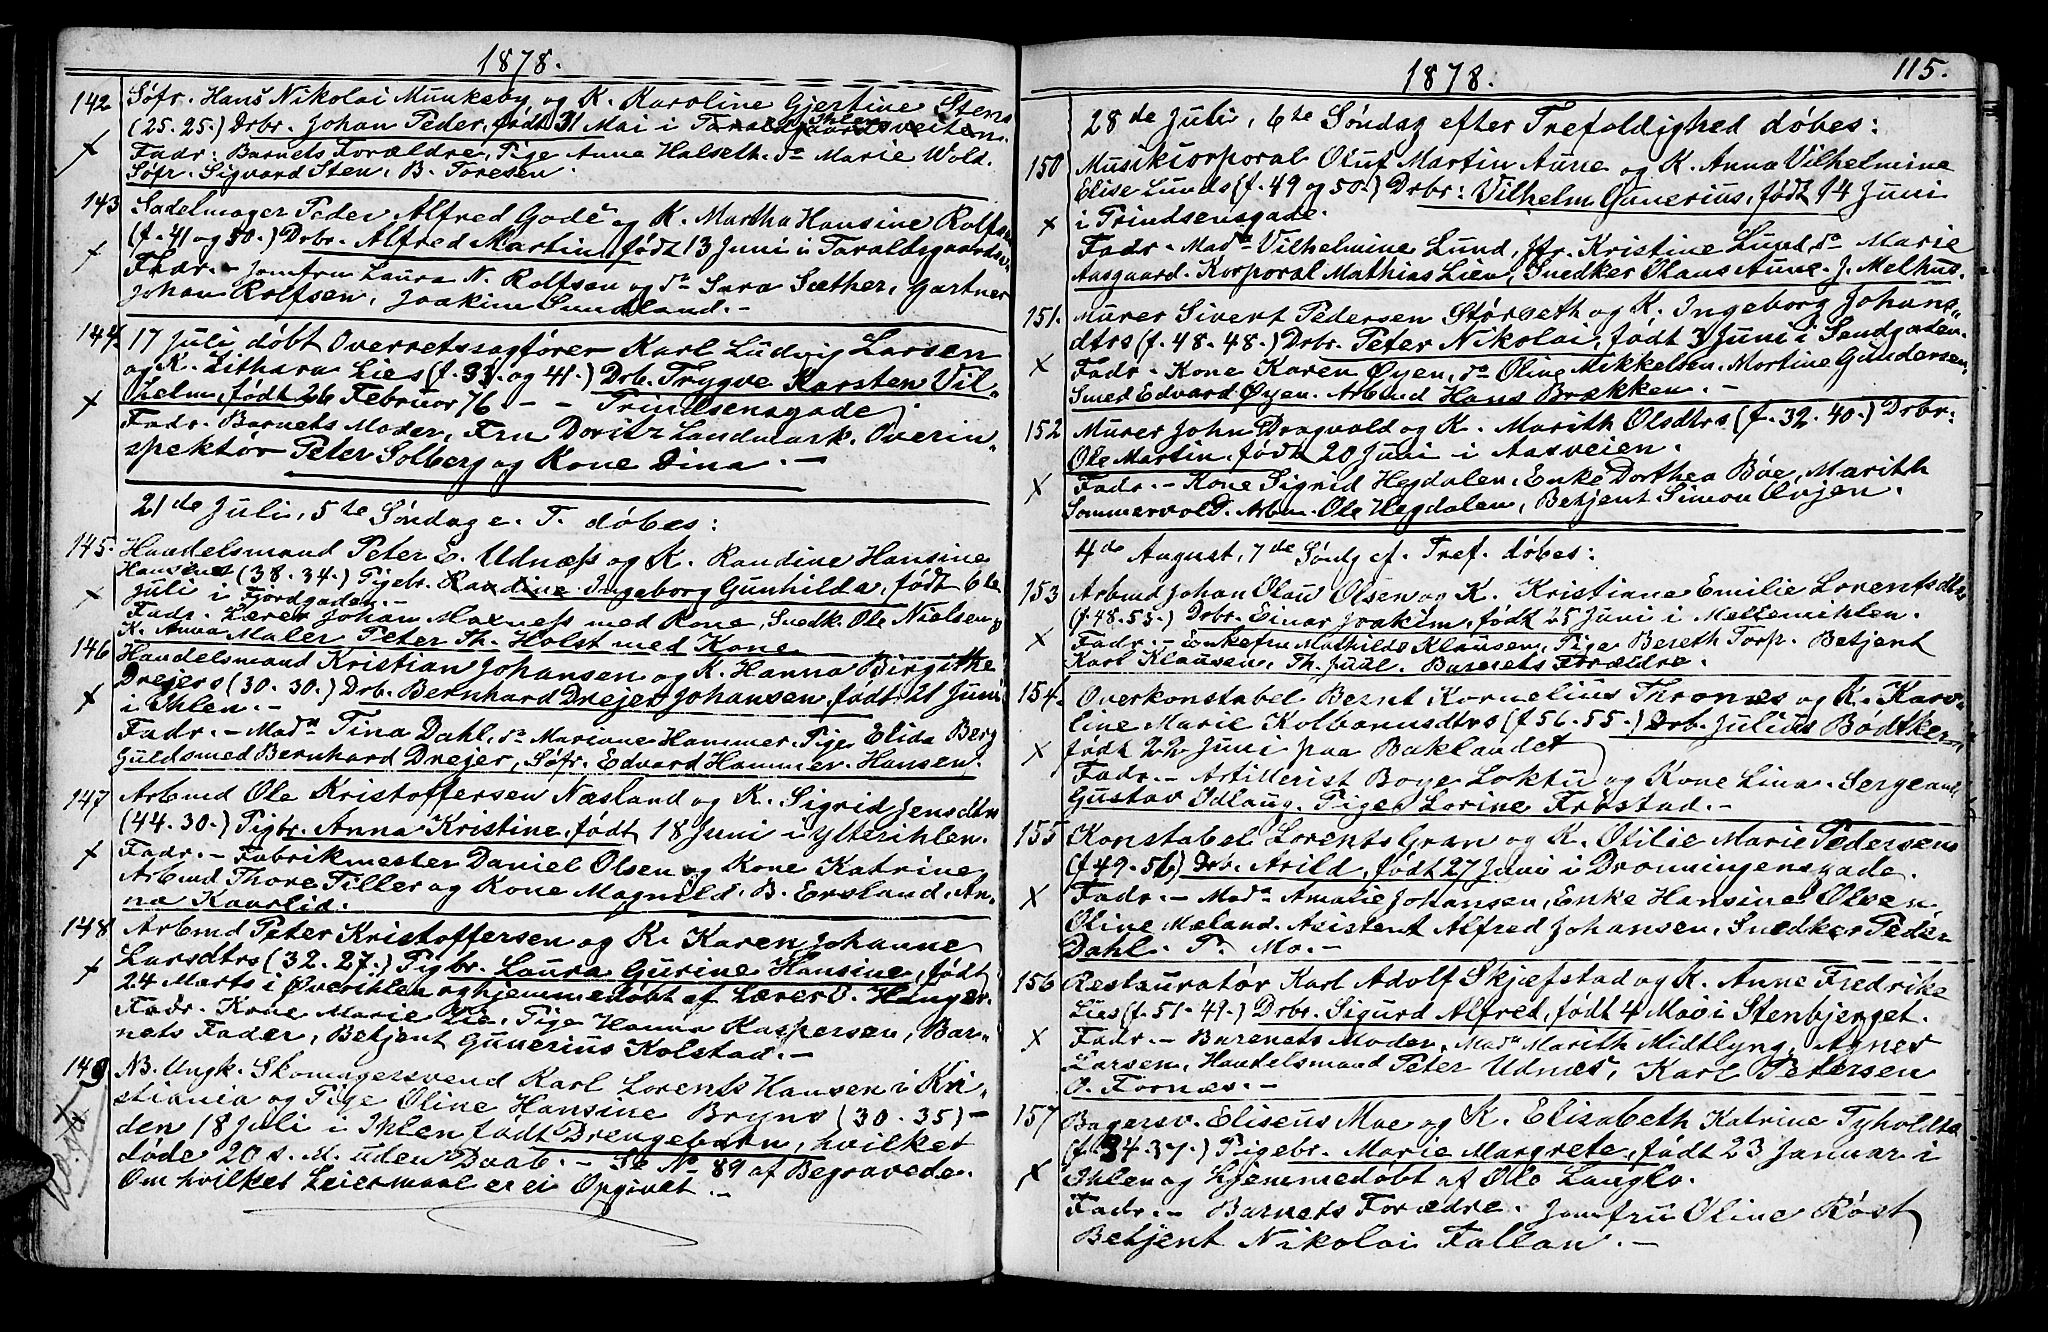 1878.
142 Søfr. Hans Nikolai Munkeby, og K. Karoline Gjertine Stens
(25.25.) Drbr. Johan Peder, født 31 Mai i Ihlen
Fadr: Barnets Forældre, Pige Anne Halseth, do Marie Wold.
Søfr. Sigvard Sten, B. Foresen.
143 Sadelmager Peder Alfred Gade og K. Martha Hansine Rolfsen
(f. 41 og 50.) Drbr. Alfred Martin, født 13 Juni i Taraldsgaardsv.
Fadr. - Jomfru Laura N. Rolfsen og do Sara Sæther, Gartner
Johan Rolfsen, Joakim Sundland. -
144. 17 Juli døbt Overretssagfører Karl Ludvig Larsen
og K. Lithara Lies (f. 33. og 41.) Drb. Trygve Karsten Vil-
helm, født 26 Februar 76 - - Trindsensgade.
Fadr. Barnets Moder, Fru Doritz Landmark. Overin-
spektør Peter Solberg og Kone Dina. -
21de Juli, 5te Søndag e. T. døbes:
145. Handelsmand Peter E. Udness og K. Randine Hansine
Hansens (38. 34.) Pigebr. Randine Ingeborg Gunhilda, født 6te
Juli i Fjordgaden. -
Fadr. Lærer Johan Moxness med Kone, Snedk. Ole Nielsen og
K. Anna Maler Peter Th. Holst med Kone
146 Handelsmand Kristian Johansen og K. Hanna Birgithe
Drejers (30. 30.) Drb. Bernhard Drejer Johansen, født 21 Juni
i Ihlen. -
Fadr. - Madm Tina Dahl, do Mariane Hammer, Pige Elida Berg
Guldsmed Bernhard Drejer, Søfr. Edvard Hammer. Hansen.
147 Arbmd Ole Kristoffersen Næsland og K. Sigrid Jensdtrs
(44. 30.) Pigbr. Anna Kristine, født 18 Juni i Ytterihlen.
Fadr. - Fabrikmester Daniel Olsen og Kone Katrine
Arbmd Thore Tiller og Kone Magnild. B. Ersland, An-
na Kaarlid.
148 Arbmd Peter Kristoffersen og K. Karen Johanne
Larsdtrs (32. 27.) Pigbr. Laura Gurine Hansine, født
24 Marts i Øverihlen og hjemmedøbt af Lærer O. Hanger.
Fadr. Kone Marie Lie, Pige Hanna Kaspersen, Bar-
nets Fader, Betjent Gunerius Kolstad. -
149 NB. Ungk. Skomagersvend Karl Lorents Hansen i Kri-
stiania og Pige Oline Hansine Bryns (30. 35) -
den 18 Juli i Ihlen født Drengebarn, hvilket
døde 20 s. M. uden Daab. - Se No 89 af Begravede.
Om hvilket Leiermaal er ei Opgivet. -
1878.
115.
28de Juli, 6te Søndag efter Trefoldighed døbes:
150 Musikkorporal Oluf Martin Aune og K. Anna Vilhelmine
Elise Lunds (f. 49 og 50.) Drbr: Vilhelm Gunerius, født 14 Juni
i Prindsensgade.
Fadr. - Madm Vilhelmine Lund, Jfr. Kristine Lund, do Marie
Aasgaard. Korporal Mathias Lien, Snedker Olaus Aune. J. Melhus.
151. Murer Sivert Pedersen Størseth og K. Ingeborg Johans-
dtrs (f. 48. 48.) Drbr. Peter Nikolai, født 3 Juni i Sendgaden.
Fadr. - Kone Karen Øyen, do Oline Mikkelsen. Martine Gundersen,
Smed Edvard Øyen. Arbmd Hans Brækken. -
152 Murer John Dragvold og K. Marith Olsdtrs (f. 32. 40.) Drbr.
Ole Martin, født 20 Juni i Aasveien.
Fadr. - Kone Sigrid Hegdalen, Enke Dorthea Bøe, Marith
Sommervold. Arbm. Ole Hegdalen, Betjent Simon Øvjen.
4de August, 7de Søndg ef. Tref. døbes:
153 Arbmd Johan Olaus Olsen og K. Kristiane Emilie Lorentsdtrs
(f. 48. 53.) Drbr. Einar Joakim, født 25 Juni i Mellemihlen.
Fadr. - Enkefru Mathilde Klausen, Pige Bereth Torp. Betjent
Karl Klausen, Th. Juul. Barnets Forældre.
154. Overkonstabel Bernt Kornelius Thrones og K. Karo-
line Marie Kolbanusdtrs (f. 56. 55.) Drb. Julius Bødtker,
født 22 Juni paa Baklandet
Fadr. - Artillerist Boye Loktu og Kone Lina. Sergeant
Gustav Odlaug. Pige Lorine Frostad. -
155 Konstabel Lorents Gran og K. Otilie Marie Pedersens
(f. 49. 56) Drb. Arild, født 27 Juni i Dronningensgade.
Fadr. - Madm Amalie Johansen, Enke Hansine Olsen
Oline Mæland. Asistent Alfred Johansen, Snedker Peder
Dahl. P. Mo. -
156 Restauratør Karl Adolf Skjefstad og K. Anne Fredrike
Lies (f. 51. 49.) Drbr. Sigurd Alfred, født 4 Mai i Stenbjerget.
Fadr. - Barnets Moder, Madm Marith Midtlyng, Agnes
Larsen, Handelsmand Peter Udnæs, Karl Petersen
O. Fornæs. -
157 Bagersv. Eliseus Moe og K. Elizabeth Katrine Tyholdts
(f. 34. 37.) Pigebr. Marie Margrete, født 23 Januar i
Ihlen og hjemmedøbt af Ole Langlo.
Fadr. - Barnets Forældre. Jomfru Oline Røst
Betjent Nikolai Fallan. -